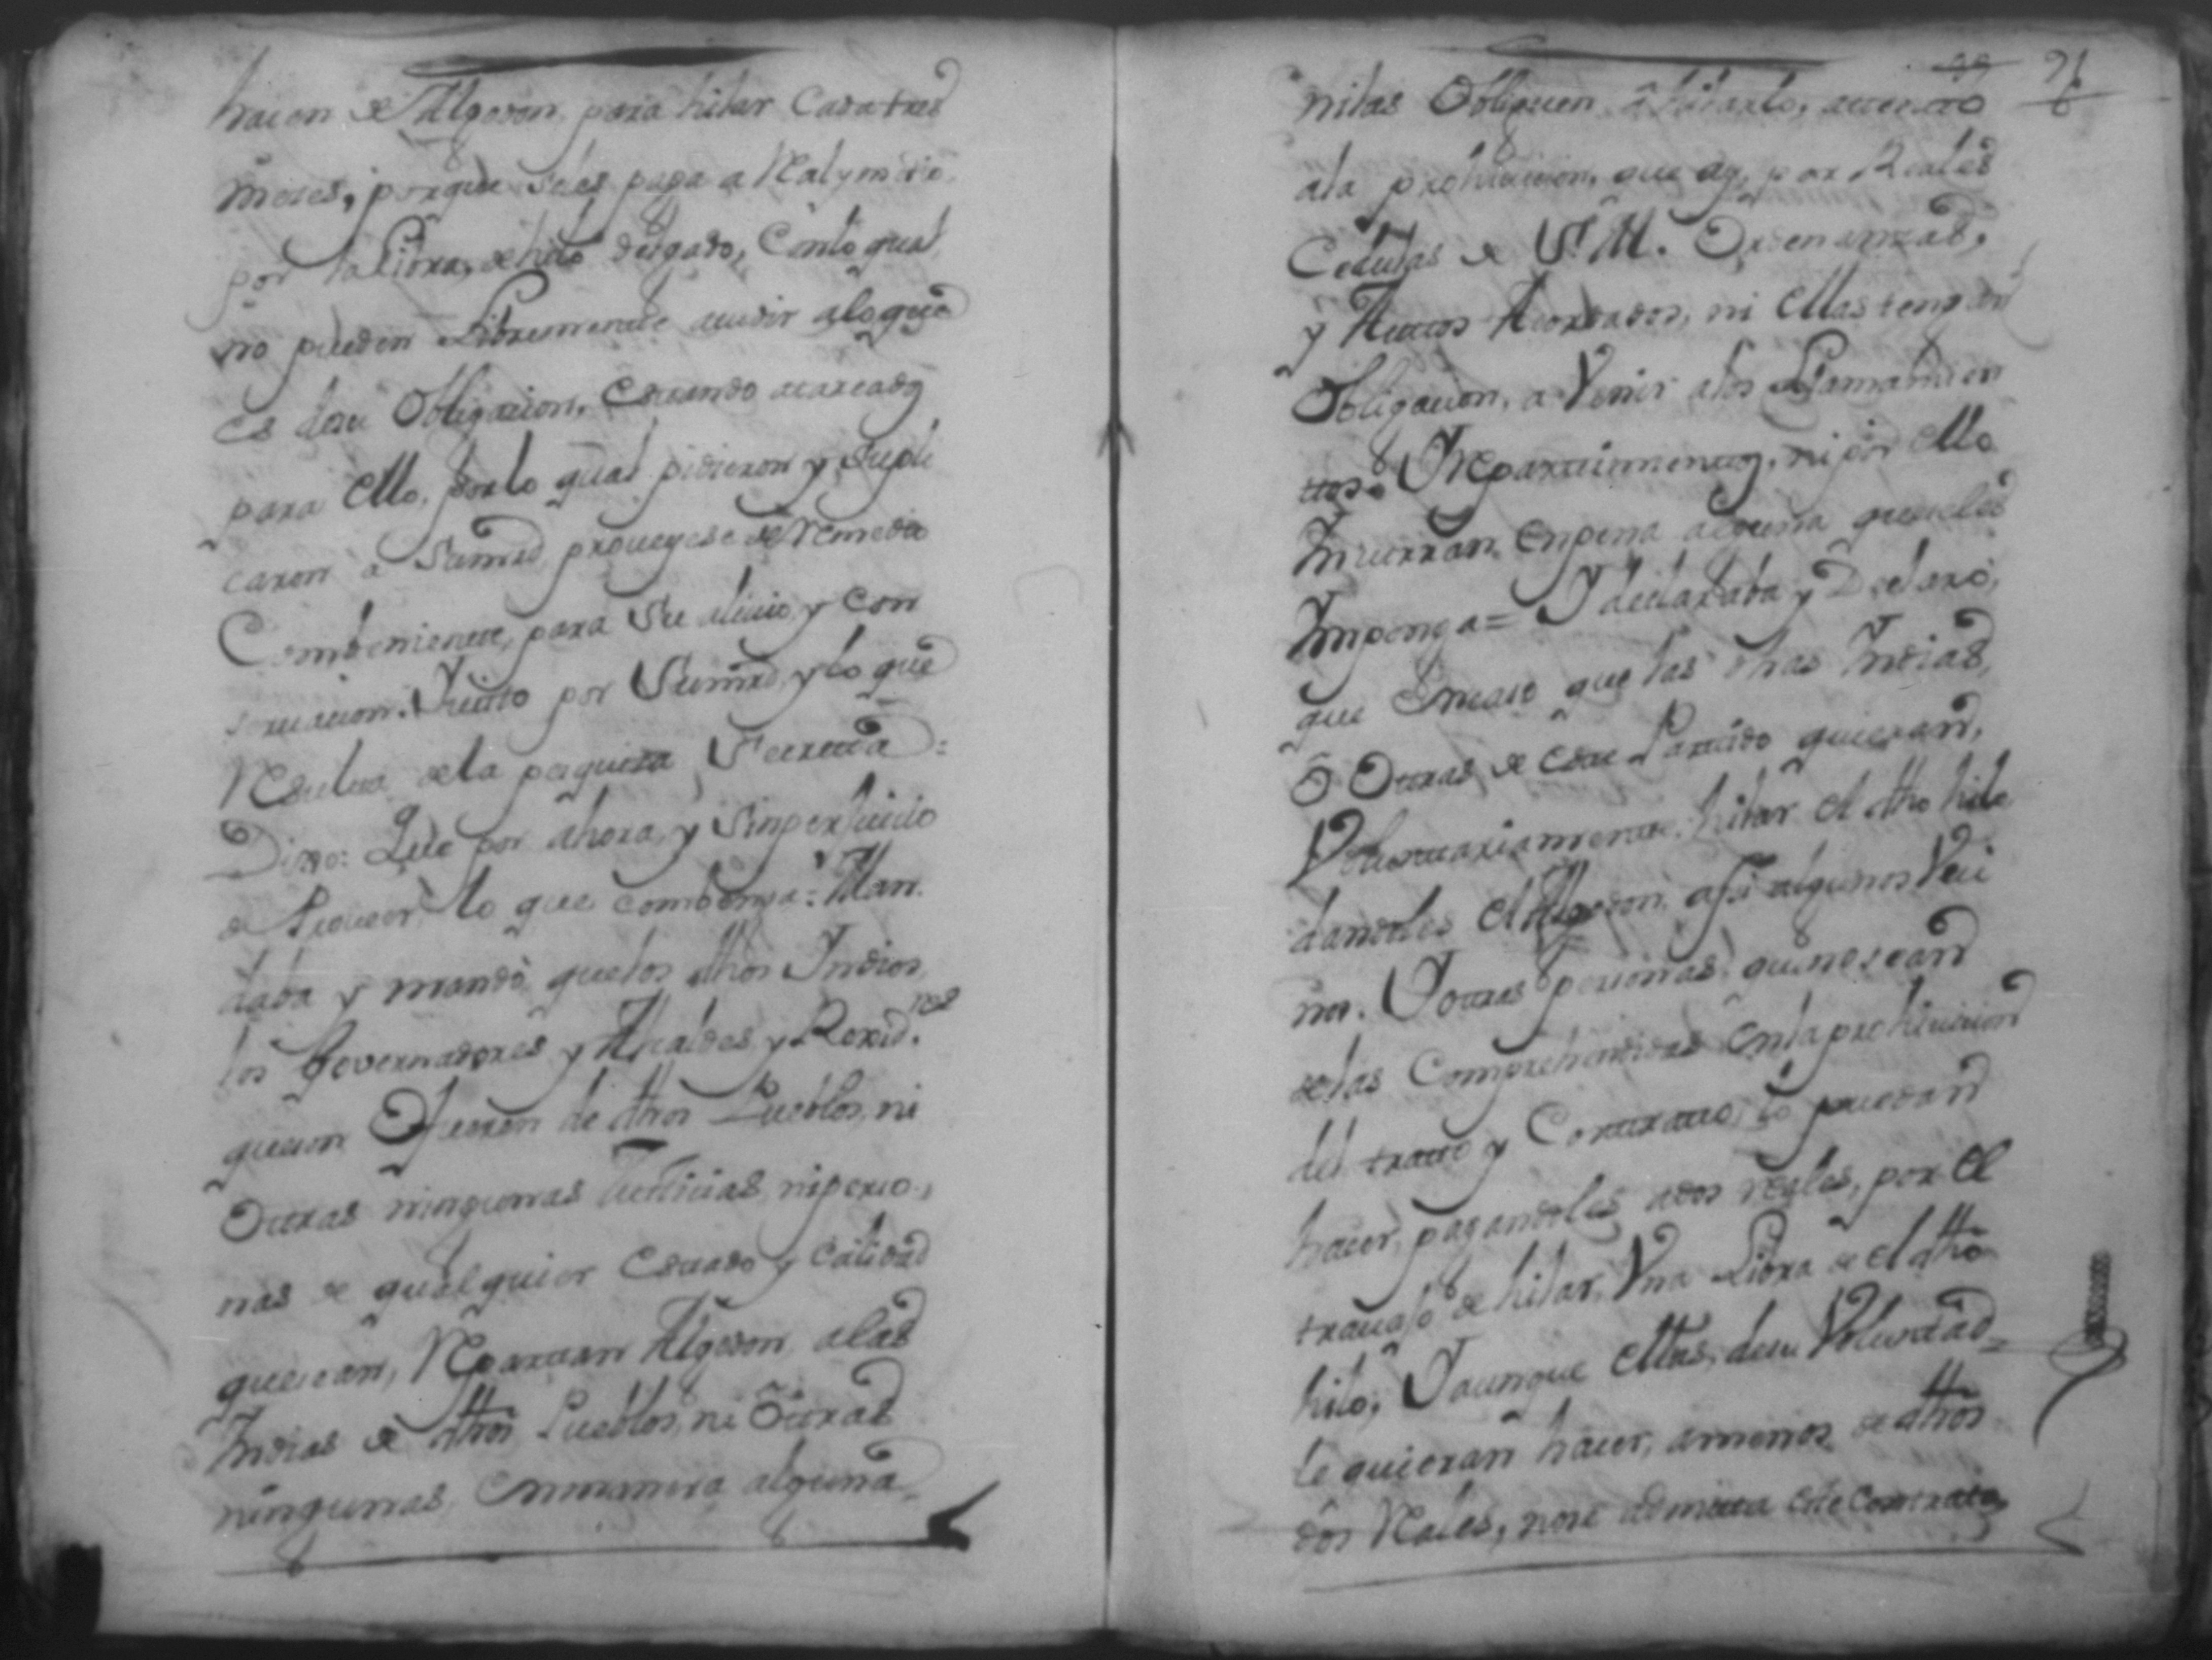 hacen de Algodon, para hilar Cada tres
meses, porque seles paga a Real y medio,
por la Libra, de hilo delgado, Conlo qual
no pueden Libremente acudir alo que
es desu Obligacion, estando atareados
para ello, porlo qual pidieron y supli
caron a Sumrd, proueyese de Remedio
Combeniente, para Su aliuio, y con
seruacion. Vuisto por Sumrd, y lo que
Resulta dela pesquiza Secreta =
Dixo: Que por ahora, y Sinperjuicio
de Proueer, lo que combenga: Man
daba y mandó quelos dhos Indios,
los Governadores y Alcaldes y Rexid.res
queson O fueren de dhos Pueblos, ni
Otras ningunas Justicias, niperso
nas de qualquier estado y calidad
quesean, Repartan Algodon, alas
Indias de dhos Pueblos, ni Otras
ningunas, Enmanera alguna
99 91
nilas Obliguen â hilarlo, atento
ala prohiuicion, que ay, por Reales
Cedulas de S. M. Ordenanzas,
y Autos Acordados, ni ellas tengan
Obligacion, a Venir alos Llamamien
tos. Y Repartimientos, ni por ello
Incurran, enpena alguna queseles
Imponga = Y declaraba y Declaró,
que Encaso que las dhas Indias,
O Otras, de este Partido quieran,
Voluntariamente, hilar el dho hilo
dandoles el Algodon, assi algunos Veci
nos. Y otras personas, quenosean
delas Comprehendidas Enla prohiuicion
del trato y Contrato, lo puedan
hacer, pagandoles ados reales, por el
trauajo de hilar, Vna Libra de el dho
hilo, Y aunque ellas, desu Voluntad
le quieran hacer, amenos de dhos
dos Reales, nose admita este contrato,